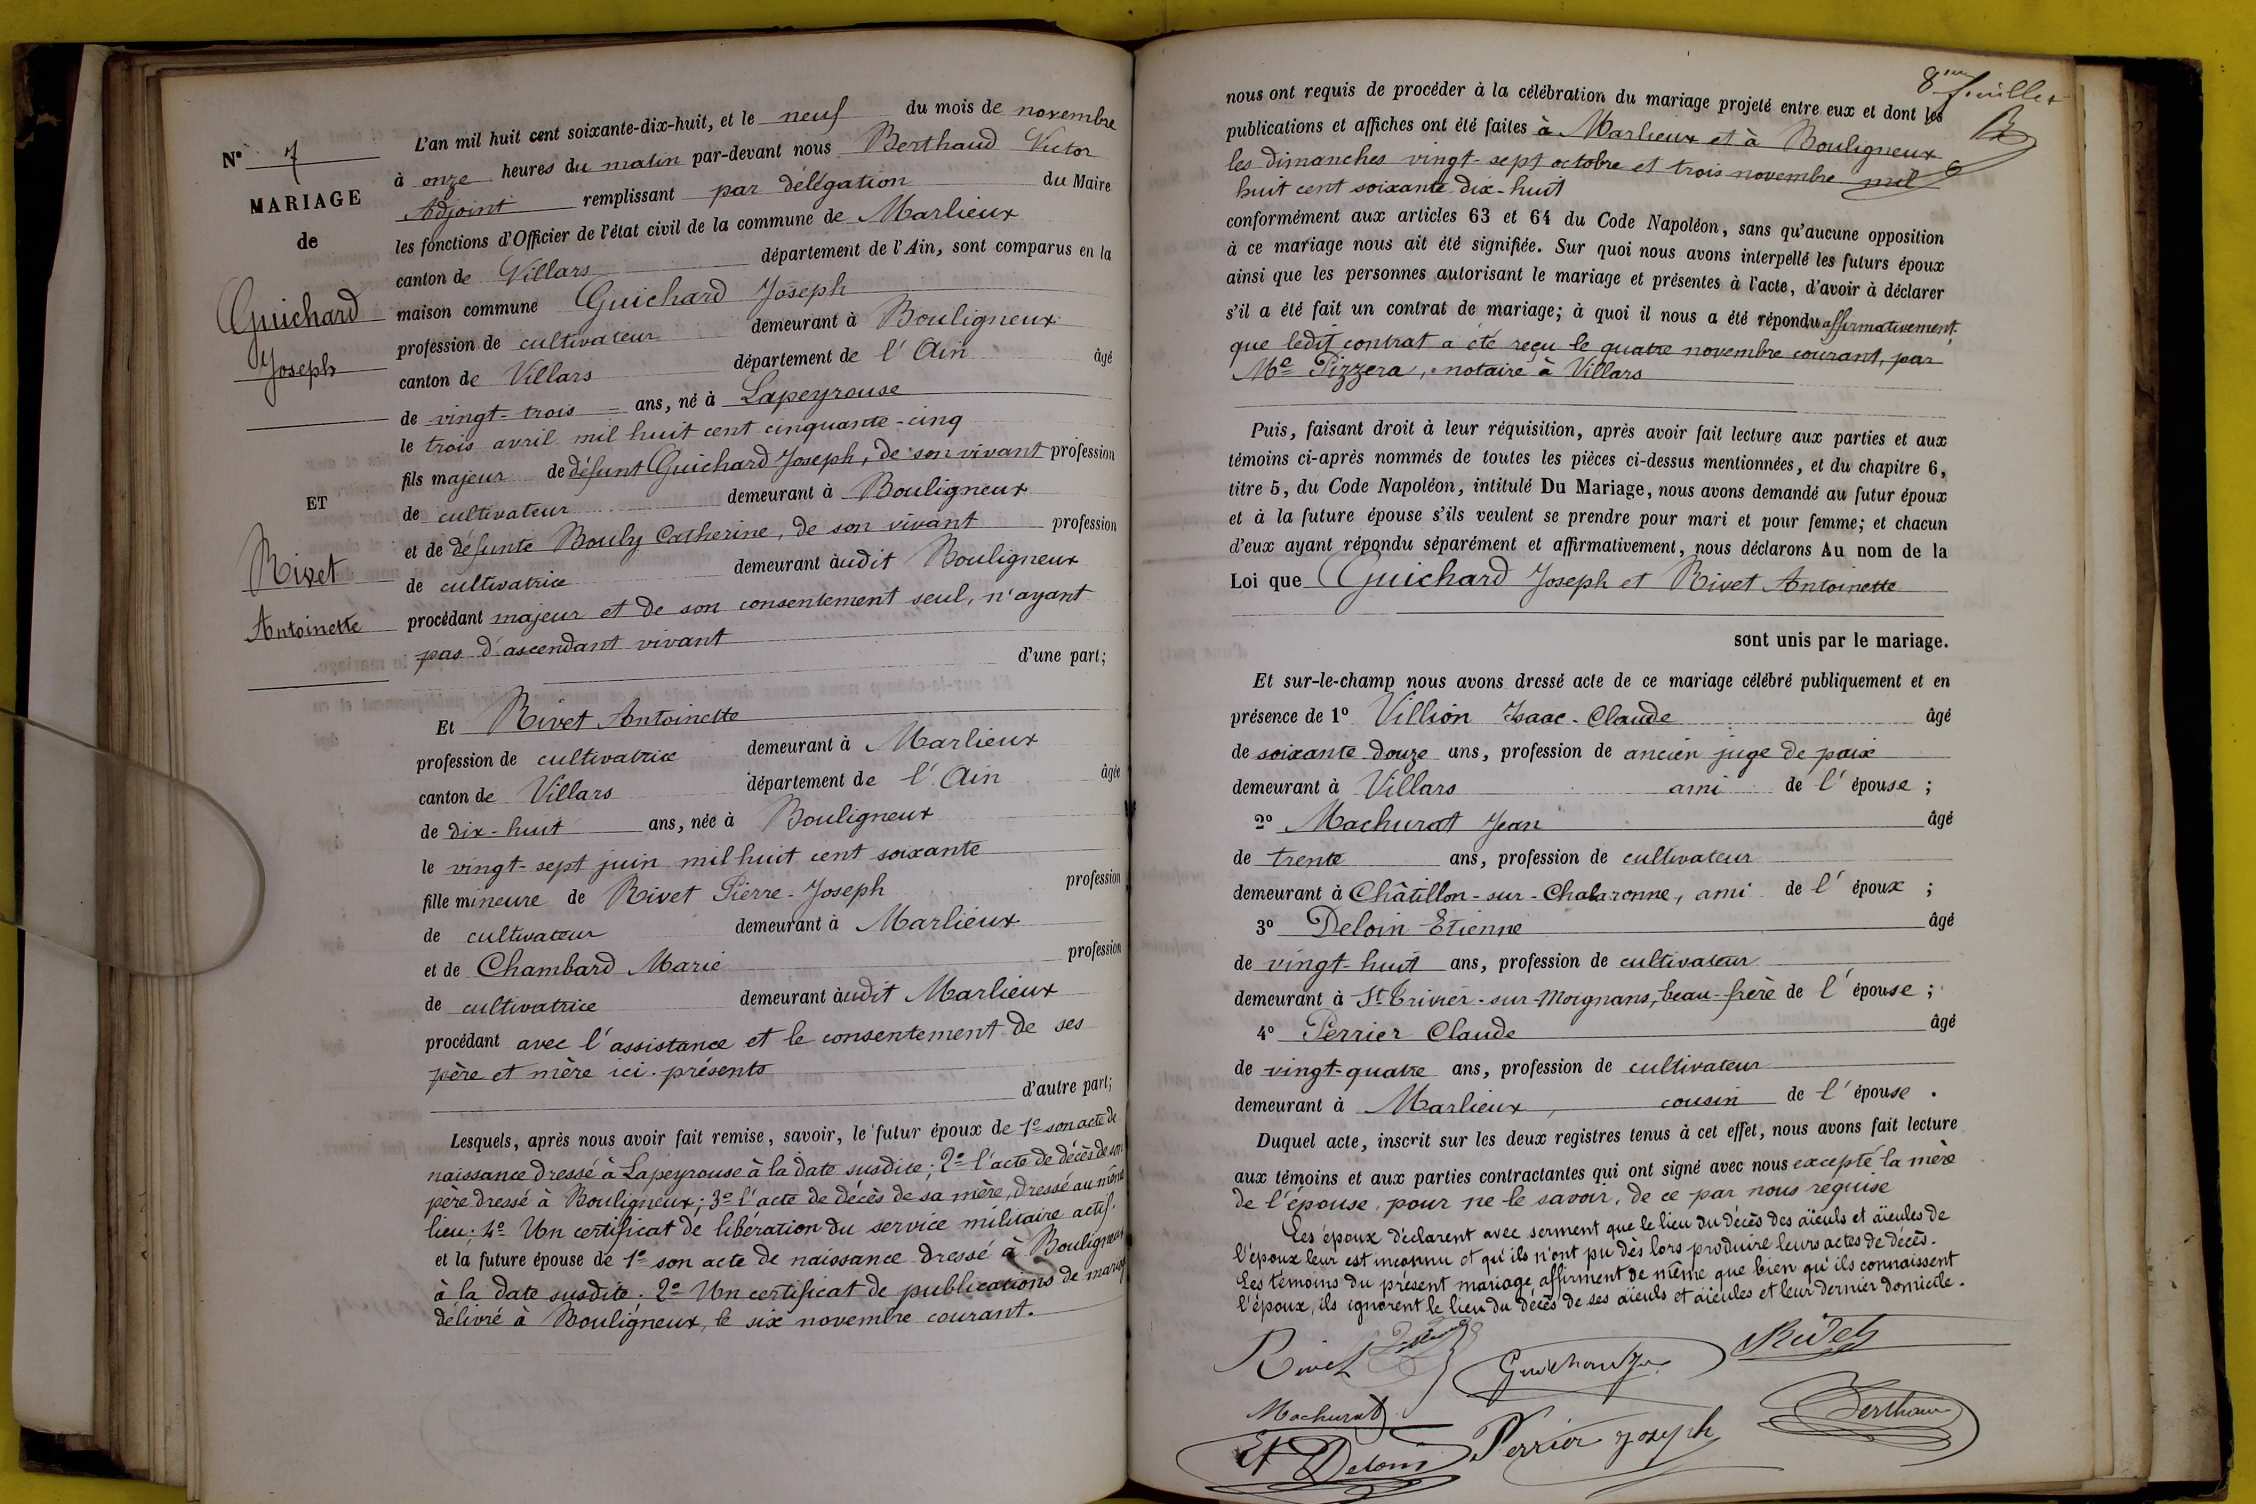 N° 7
MARIAGE
de
Guichard
Joseph
ET
Rivet
Antoinette
L'an mil huit cent soixante-dix-huit, et le neuf du mois de novembre
à onze heures du matin par-devant nous Berthaud Victor
Adjoint remplissant par délégation du Maire
les fonctions d'Officier de l'état civil de la commune de Marlieux
canton de Villars département de l'Ain, sont comparus en la
maison commune Guichard Joseph
profession de cultivateur demeurant à Bouligneux
canton de Villars département de l'Ain âgé
de vingt-trois ans, né à Lapeyrouse
le trois avril mil huit cent cinquante-cinq
fils majeur de défunt Guichard Joseph, de son vivant profession
de cultivateur demeurant à Bouligneux
et de défunte Bouly Catherine, de son vivant profession
de cultivatrice demeurant àudit Bouligneux
procédant majeur et de son consentement seul, n'ayant
pas d'ascendant vivant
d'une part;
Et Rivet Antoinette
profession de cultivatrice demeurant à Marlieux
canton de Villars département de l'Ain âgée
de dix-huit ans, née à Bouligneux
le vingt-sept juin mil huit cent soixante
fille mineure de Rivet Pierre-Joseph profession
de cultivateur demeurant à Marlieux
et de Chambard Marie profession
de cultivatrice demeurant àudit Marlieux
procédant avec l'assistance et le consentement de ses
père et mère ici présents
d'autre part;
Lesquels, après nous avoir fait remise, savoir, le futur époux de 1° son acte de
naissance dressé à Lapeyrouse à la date susdite; 2° l'acte de décès de son
père dressé à Bouligneux; 3° l'acte de décès de sa mère, dressé au même
lieu; 4° Un certificat de libération du service militaire actif.
et la future épouse de 1° son acte de naissance dressé à Bouligneux
à la date susdite. 2° Un certificat de publications de mariage
délivré à Bouligneux, le six novembre courant.
8me feuillet
nous ont requis de procéder à la célébration du mariage projeté entre eux et dont les
publications et affiches ont été faites à Marlieux et à Bouligneux
les dimanches vingt-sept octobre et trois novembre mil
huit cent soixante dix-huit
conformément aux articles 63 et 64 du Code Napoléon, sans qu'aucune opposition
à ce mariage nous ait été signifiée. Sur quoi nous avons interpellé les futurs époux
ainsi que les personnes autorisant le mariage et présentes à l'acte, d'avoir à déclarer
s'il a été fait un contrat de mariage; à quoi il nous a été répondu affirmativement,
que ledit contrat a été reçu le quatre novembre courant, par
Me Pizzera, notaire à Villars
Puis, faisant droit à leur réquisition, après avoir fait lecture aux parties et aux
témoins ci-après nommés de toutes les pièces ci-dessus mentionnées, et du chapitre 6,
titre 5, du Code Napoléon, intitulé Du Mariage, nous avons demandé au futur époux
et à la future épouse s'ils veulent se prendre pour mari et pour femme; et chacun
d'eux ayant répondu séparément et affirmativement, nous déclarons Au nom de la
Loi que Guichard Joseph et Rivet Antoinette
sont unis par le mariage.
Et sur-le-champ nous avons dressé acte de ce mariage célébré publiquement et en
présence de 1° Villion Isaac-Claude âgé
de soixante douze ans, profession de ancien juge de paix
demeurant à Villars ami de l'épouse;
2° Machurat Jean âgé
de trente ans, profession de cultivateur
demeurant à Châtillon-sur-Chalaronne, ami de l'époux;
3° Deloin Etienne âgé
de vingt-huit ans, profession de cultivateur
demeurant à St Trivier-sur-Moignans, beau-frère de l'épouse;
4° Perrier Claude âgé
de vingt-quatre ans, profession de cultivateur
demeurant à Marlieux, cousin de l'épouse.
Duquel acte, inscrit sur les deux registres tenus à cet effet, nous avons fait lecture
aux témoins et aux parties contractantes qui ont signé avec nous excepté la mère
de l'épouse, pour ne le savoir, de ce par nous réquise
Les époux déclarent avec serment que le lieu du décès des aïeuls et aïeules de
l'époux leur est inconnu et qu'ils n'ont pu dès lors produire leurs actes de décès.
Les témoins du présent mariage affirment de même que bien qu'ils connaissent
l'époux, ils ignorent le lieu du décès de ses aïeuls et aïeules et leur dernier domicile.
Rivet Guichard Rivet
Machurat Berthaud
Et Deloin Perrier Joseph